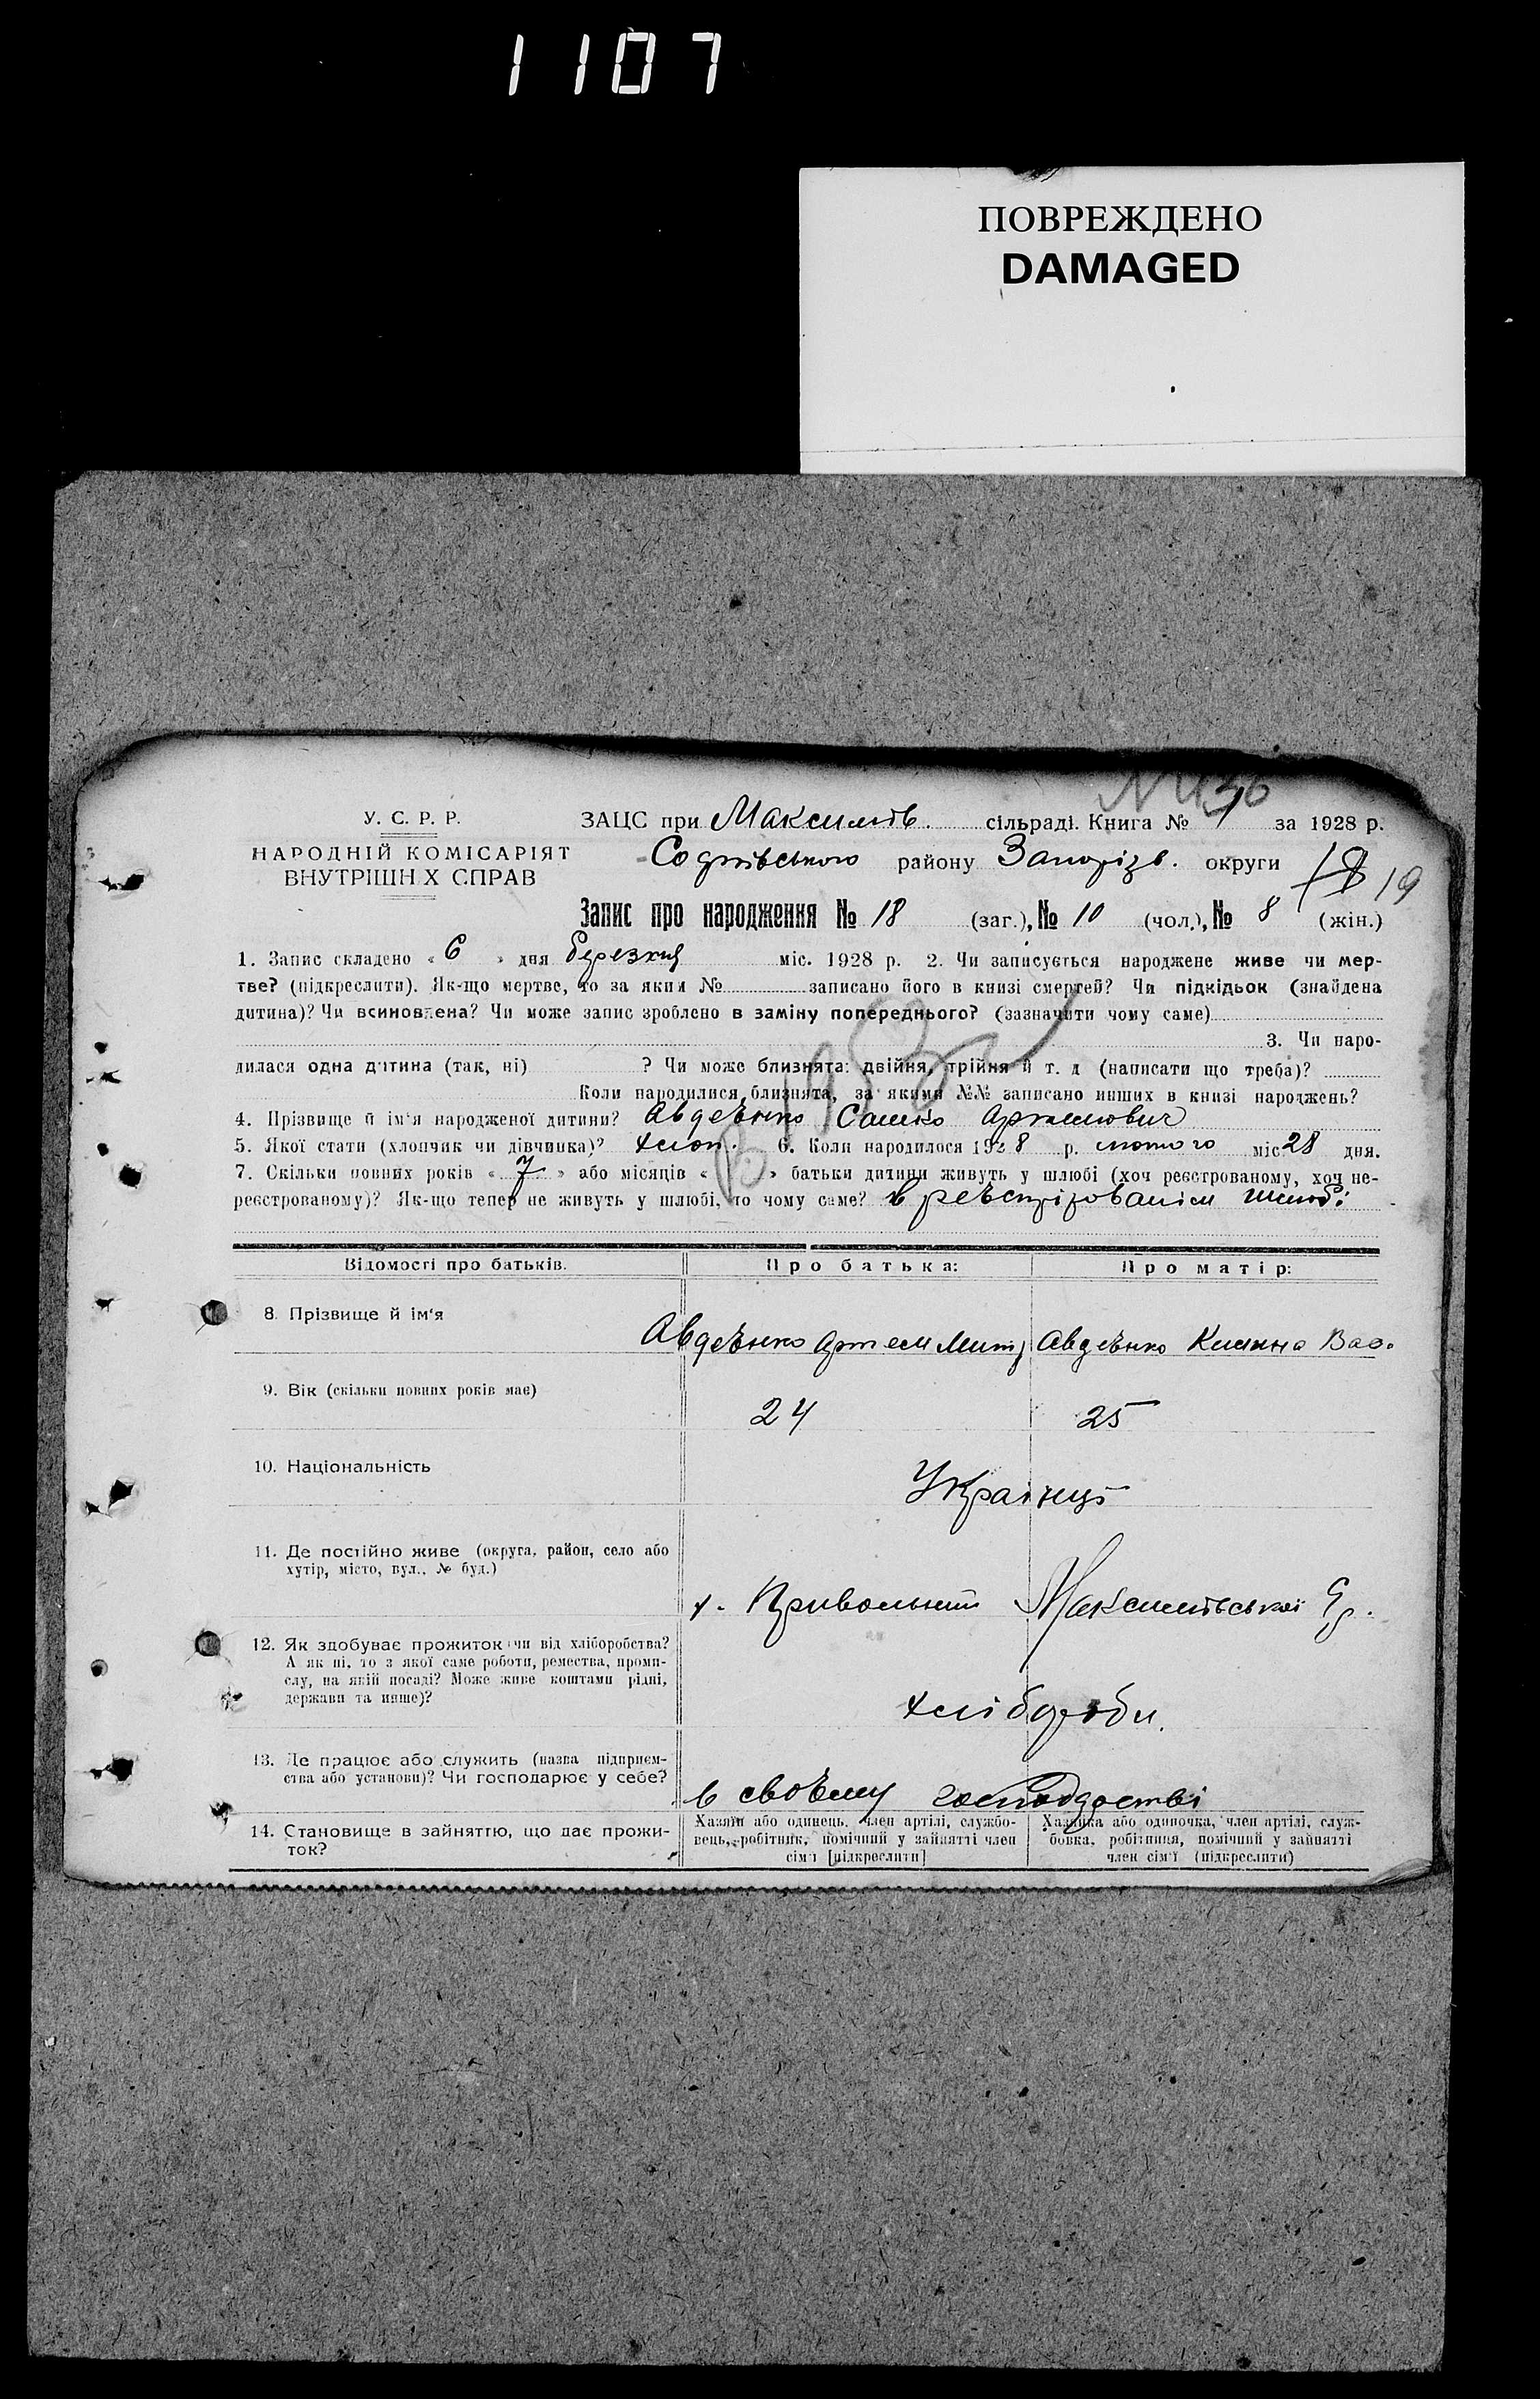 1107
ПОВРЕЖДЕНО
DAMAGED
У. С. Р. Р.
НАРОДНІЙ КОМІСАРІЯТ
ВНУТРІШН Х СПРАВ
ЗАЦС при Максимів. сільраді. Книга № 1 за 1928 р.
району Запоріз. округи
19
Запис про народження № 18 (заг.), № 10 (чол.), № 8 (жін.)
1. Запис складено «6» дня березня міс. 1928 р. 2. Чи записується народжене живе чи мер-
тве? (підкреслити). Як-що мертве, то за яким № записано його в книзі смертей? Чи підкідьок (знайдена
дитина)? Чи всиновлена? Чи може запис зроблено в заміну попереднього? (зазначити чому саме)
3. Чи наро-
дилася одна дитина (так, ні) ? Чи може близнята: двійня, трійня й т. д (написати що треба)?
Коли народилися близнята, за якими №№ записано инших в книзі народжень?
4. Прізвище й ім'я народженої дитини? Авдєенко Сашко Артемович
5. Якої стати (хлопчик чи дівчинка)? хлоп. 6. Коли народилося 1928 р. лютого міс 28 дня.
7. Скільки повних років «7» або місяців « » батьки дитини живуть у шлюбі (хоч реєстрованому, хоч не-
реєстрованому)? Як-що тепер не живуть у шлюбі, то чому саме? в реєстрірованім шлюбі
Відомості про батьків.
Про батька:
Про матір:
8. Прізвище й ім'я
Авдєенко Артем Мит
Авдєенко Килина Вас.
9. Вік (скільки повних років має)
24
25
10. Національність
Українці
11. Де постійно живе (округа, район, село або
хутір, місто, вул., № буд.)
х. Привольний Максимівської
12. Як здобуває прожиток чи від хліборобства?
А як ні, то з якої саме роботи, ремества, проми-
слу, на якій посаді? Може живе коштами рідні,
держави та инше)?
хлібороби.
13. Де працює або служить (назва підприєм-
ства або установи)? Чи господарює у себе?
в своєму господарстві
14. Становище в зайняттю, що дає прожи-
ток?
Хазяїн або одинець, член артілі, службо-
вець, робітник, помічний у зайнятті член
сім'ї [підкреслити]
Хазяйка або одиночка, член артілі, служ-
бовка, робітниця, помічний у зайнятті
член сім'ї (підкреслити)